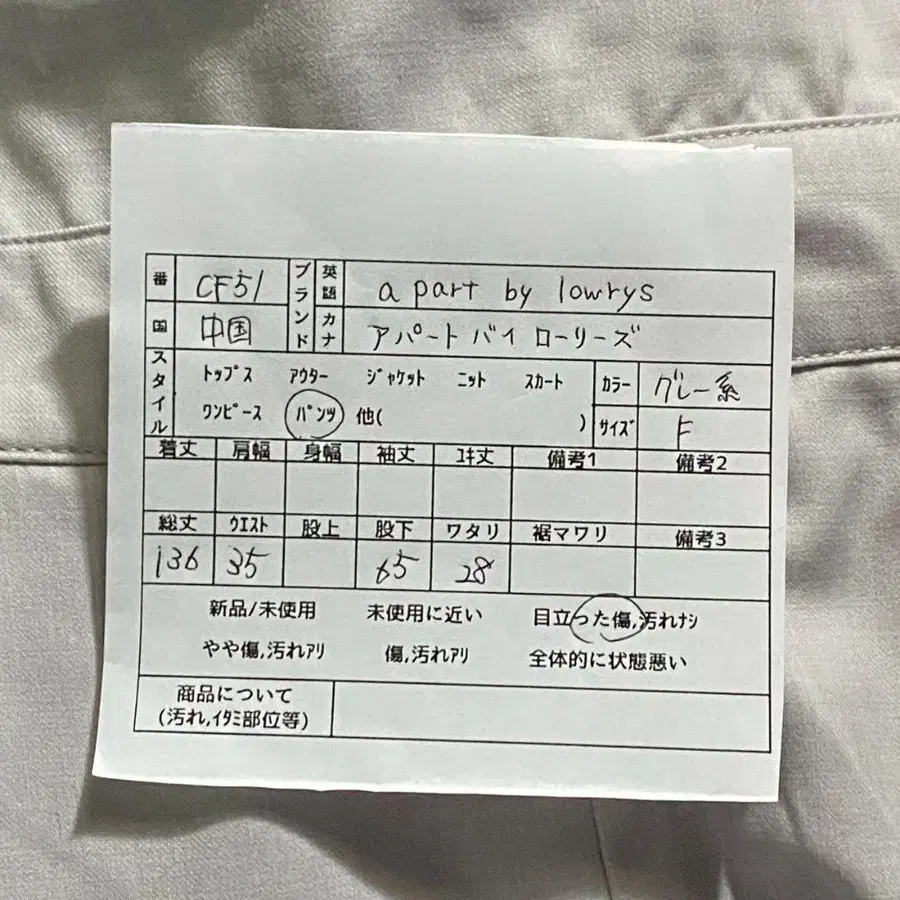 番 CF51 ブランド 英語 a part by lowrys
国 中国 カナ アパート バイ ローリーズ
スタイル トップス アウター ジャケット ニット スカート カラー グレー系
ワンピース パンツ 他( ) サイズ F
着丈 肩幅 身幅 袖丈 ユキ丈 備考1 備考2
総丈 ウエスト 股上 股下 ワタリ 裾マワリ 備考3
136 35 65 28
新品/未使用 未使用に近い 目立った傷,汚れナシ
やや傷,汚れアリ 傷,汚れアリ 全体的に状態悪い
商品について
(汚れ,イタミ部位等)